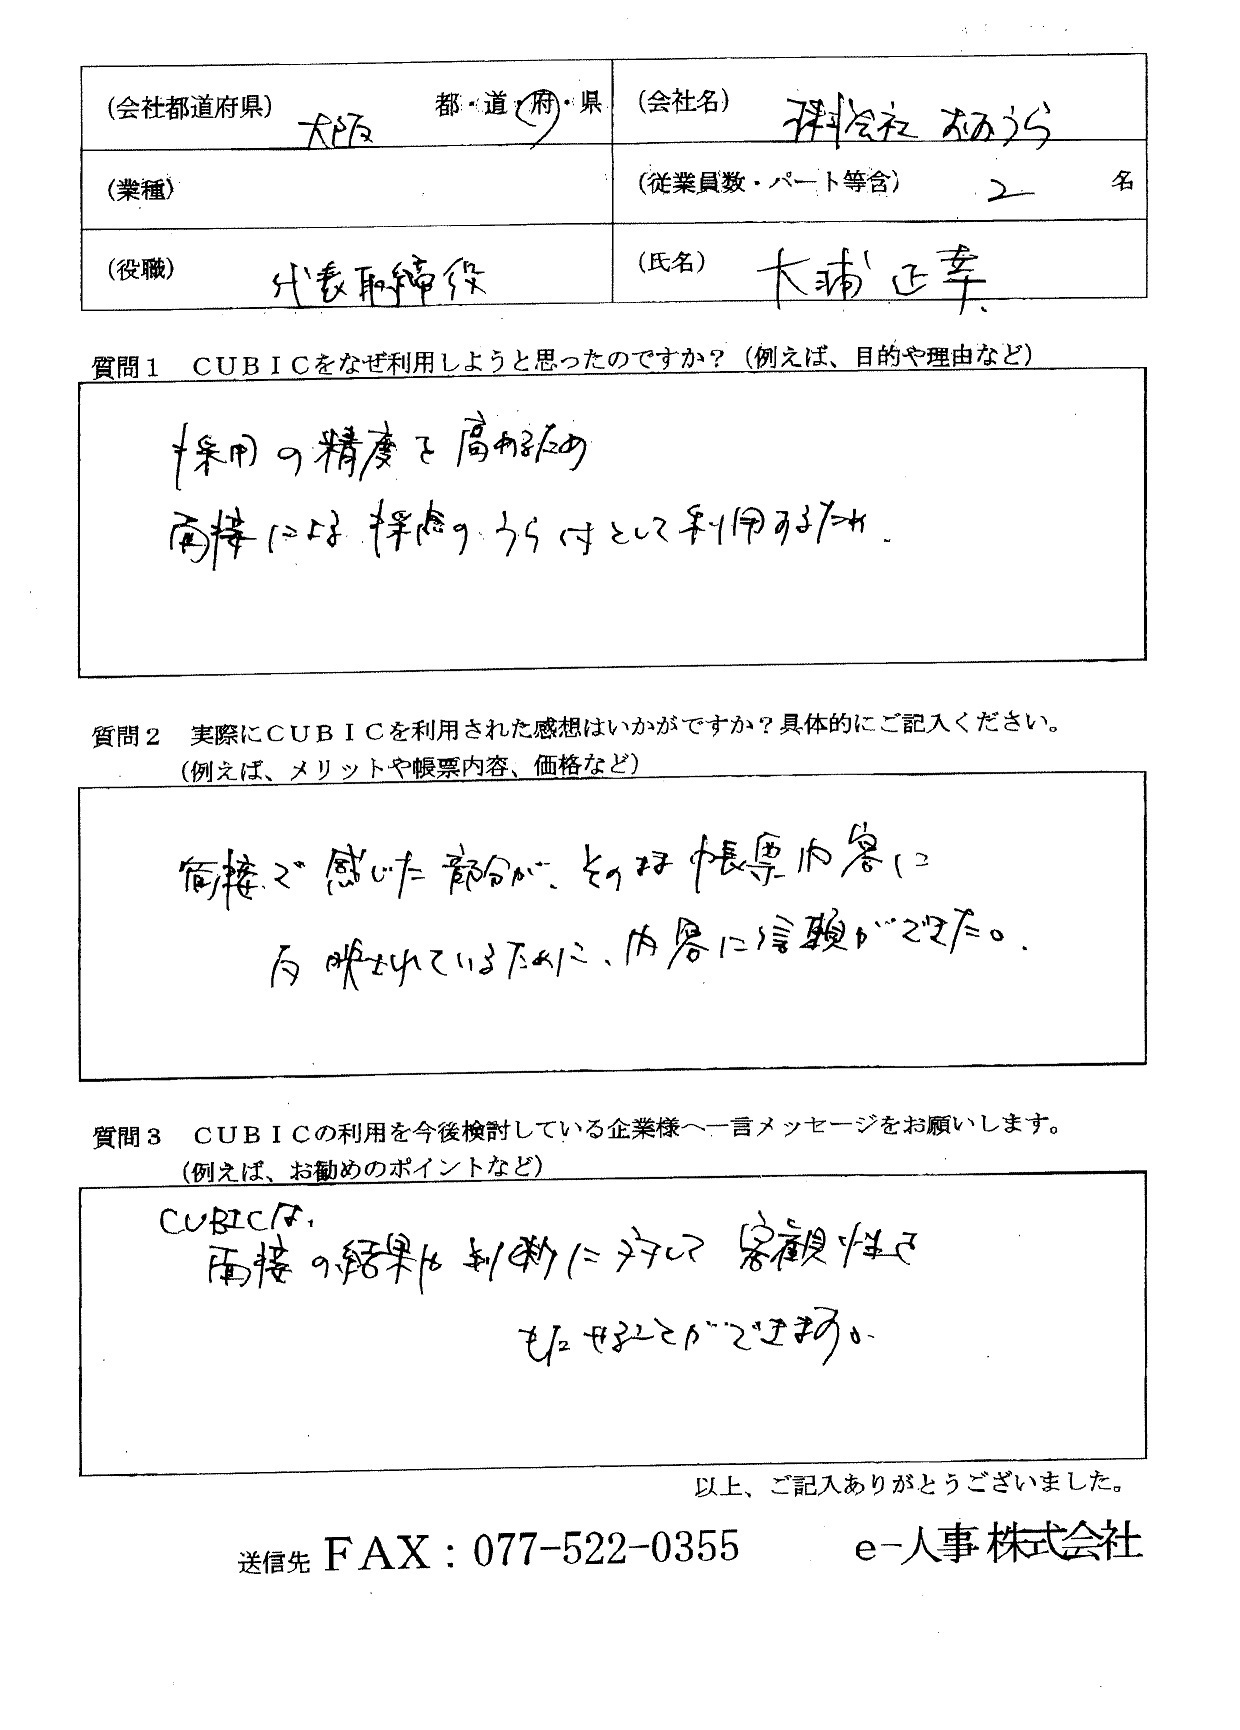 (会社都道府県) 大阪 都・道・府・県 (会社名) 株式会社 おおうら
(業種) (従業員数・パート等含) 2 名
(役職) 代表取締役 (氏名) 大浦 正幸
質問1 CUBICをなぜ利用しようと思ったのですか?(例えば、目的や理由など)
採用の精度を高めるため
面接による採点のうら付として利用するため.
質問2 実際にCUBICを利用された感想はいかがですか?具体的にご記入ください。
(例えば、メリットや帳票内容、価格など)
面接で感じた部分が、そのまま帳票内容に
反映されているために、内容に信頼ができた。
質問3 CUBICの利用を今後検討している企業様へ一言メッセージをお願いします。
(例えば、お勧めのポイントなど)
CUBICは、
面接の結果や判断に対して客観性を
もたせることができます。
以上、ご記入ありがとうございました。
送信先 FAX:077-522-0355 e-人事株式会社